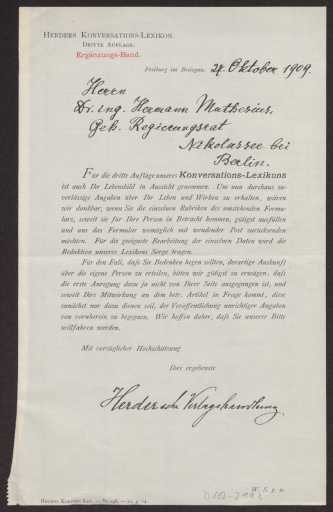 HERDERS KONVERSATIONS-LEXIKON.
DRITTE AUFLAGE.
Ergänzungs-Band.
Freiburg im Breisgau, 28. Oktober 1909.
Herrn
Dr. ing. Hermann Muthesius,
Geh. Regierungsrat
Nikolassee bei
Berlin.
Für die dritte Auflage unseres Konversations-Lexikons
ist auch Ihr Lebensbild in Aussicht genommen. Um nun durchaus zu-
verlässige Angaben über Ihr Leben und Wirken zu erhalten, wären
wir dankbar, wenn Sie die einzelnen Rubriken des anstehenden Formu-
lars, soweit sie für Ihre Person in Betracht kommen, gütigst ausfüllen
und uns das Formular womöglich mit wendender Post zurücksenden
möchten. Für die geeignete Bearbeitung der einzelnen Daten wird die
Redaktion unseres Lexikons Sorge tragen.
Für den Fall, daß Sie Bedenken hegen sollten, derartige Auskunft
über die eigene Person zu erteilen, bitten wir gütigst zu erwägen, daß
die erste Anregung dazu ja nicht von Ihrer Seite ausgegangen ist, und
soweit Ihre Mitwirkung an dem betr. Artikel in Frage kommt, diese
zunächst nur dazu dienen soll, der Veröffentlichung unrichtiger Angaben
von vornherein zu begegnen. Wir hoffen daher, daß Sie unserer Bitte
willfahren werden.
Mit vorzüglicher Hochachtung
Ihre ergebenste
Herdersche Verlagshandlung.